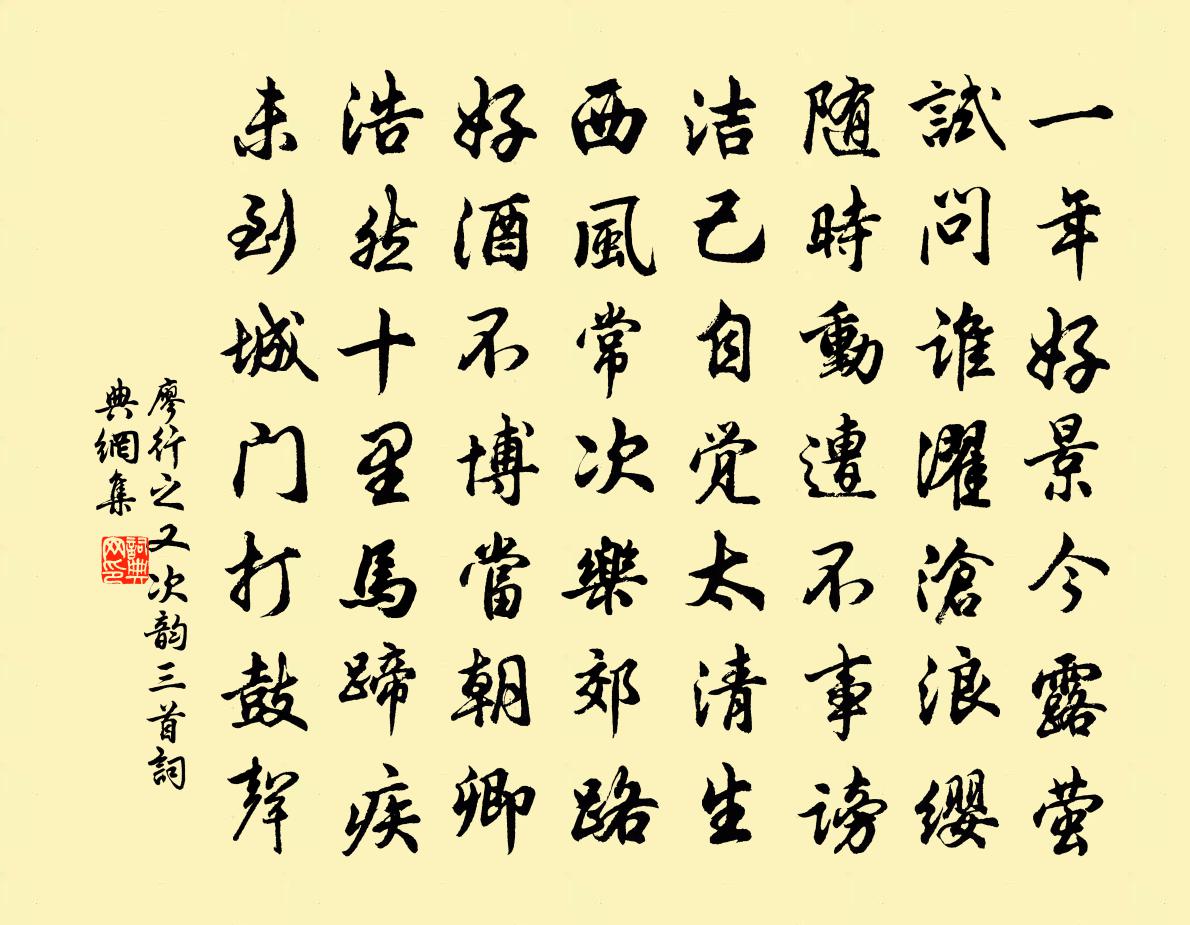 一年好景今露萤
試问谁濯滄浪缨
随時動遭不事谤
洁己自觉太清生
西風常次樂郊路
好酒不博當朝卿
浩然十里馬蹄疾
未到城门打鼓聲
廖行之又次韵三首詞
典網集
詞典网印